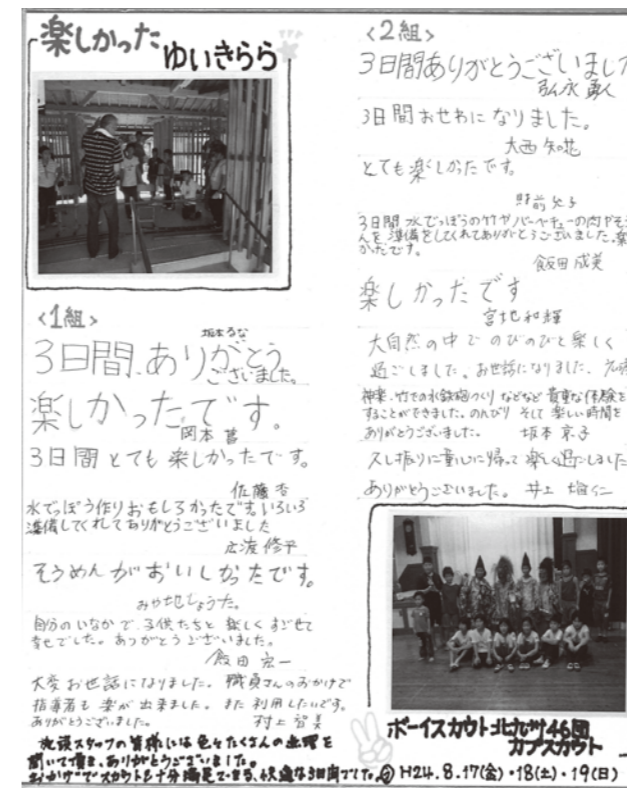 楽しかった
ゆいきらら
<1組>
坂本るな
3日間、ありがとう
ございました。
楽しかったです。
岡本 菖
3日間とても楽しかったです。
佐藤 杏
水でっぽう作りおもしろかったです。いろいろ
準備してくれてありがとうございました
広渡 修平
そうめんがおいしかったです。
みやちじょうた。
自分のいなかで、子供たちと楽しくすごせて
幸せでした。ありがとうございました。
飯田 宏一
大変お世話になりました。職員さんのおかげで
指導者も楽が出来ました。また利用したいです。
ありがとうございました。
村上 智美
スタッフの皆様には色々たくさんの無理を
聞いて頂き、ありがとうございました。
おかげでスカウトも十分満足できる、快適な3日間でした。
<2組>
3日間ありがとうございました
弘永 勇人
3日間おせわになりました。
大西 知花
とても楽しかったです。
財前
3日間水でっぽうの竹やバーベキューの肉やそうめ
んを準備をしてくれてありがとうございました。楽し
かったです。
飯田 成美
楽しかったです
宮地 和輝
大自然の中でのびのびと楽しく
過ごしました。お世話になりました。
神楽、竹での水鉄砲つくりなどなど貴重な体験を
することができました。のんびりそして楽しい時間を
ありがとうございました。 坂本 京子
久し振りに童心に帰って楽しく過ごしました
ありがとうございました。 井上
ボーイスカウト北九州46団
カブスカウト
H24. 8.17(金)・18(土)・19(日)